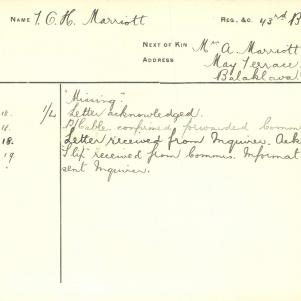 NAME T. C. H. Marriott REG. &C. 43rd B
NEXT OF KIN Mrs A. Marriott
ADDRESS May Terrace
Balaklava
"Missing"
18. 1/2 Letter acknowledged.
P/Cable confirmed forwarded Comm
18. Letter received from Inquirer. Ack
19 Slip received from Commis. Informat
sent Inquirer.